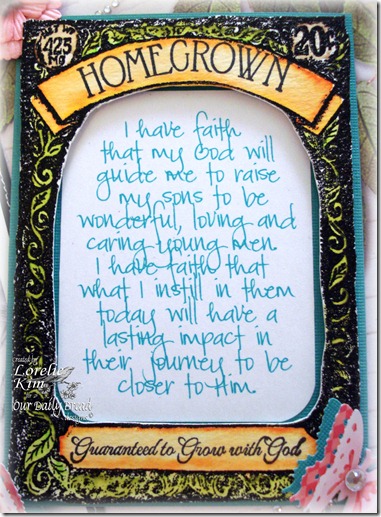 NET WT
425
MG
20¢
HOMEGROWN
I have faith
that my God will
guide me to raise
my sons to be
wonderful, loving and
caring young men.
I have faith that
what I instill in them
today will have a
lasting impact in
their journey to be
closer to Him.
created by
Lorelie
Kim
Our Daily Bread
designs
Guaranteed to Grow with God